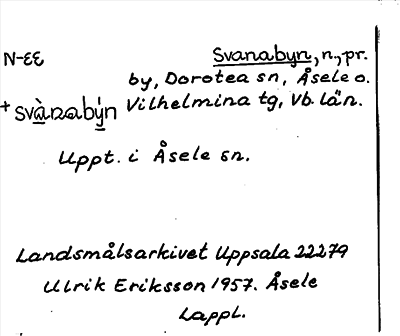 N-εε
Svanabyn, n., pr.
by, Dorotea sn, Åsele o.
Vilhelmina tg, Vb. län.
+ svànabýn
Uppt. i Åsele sn.
Landsmålsarkivet Uppsala 22279
Ulrik Eriksson 1957. Åsele
Lappl.